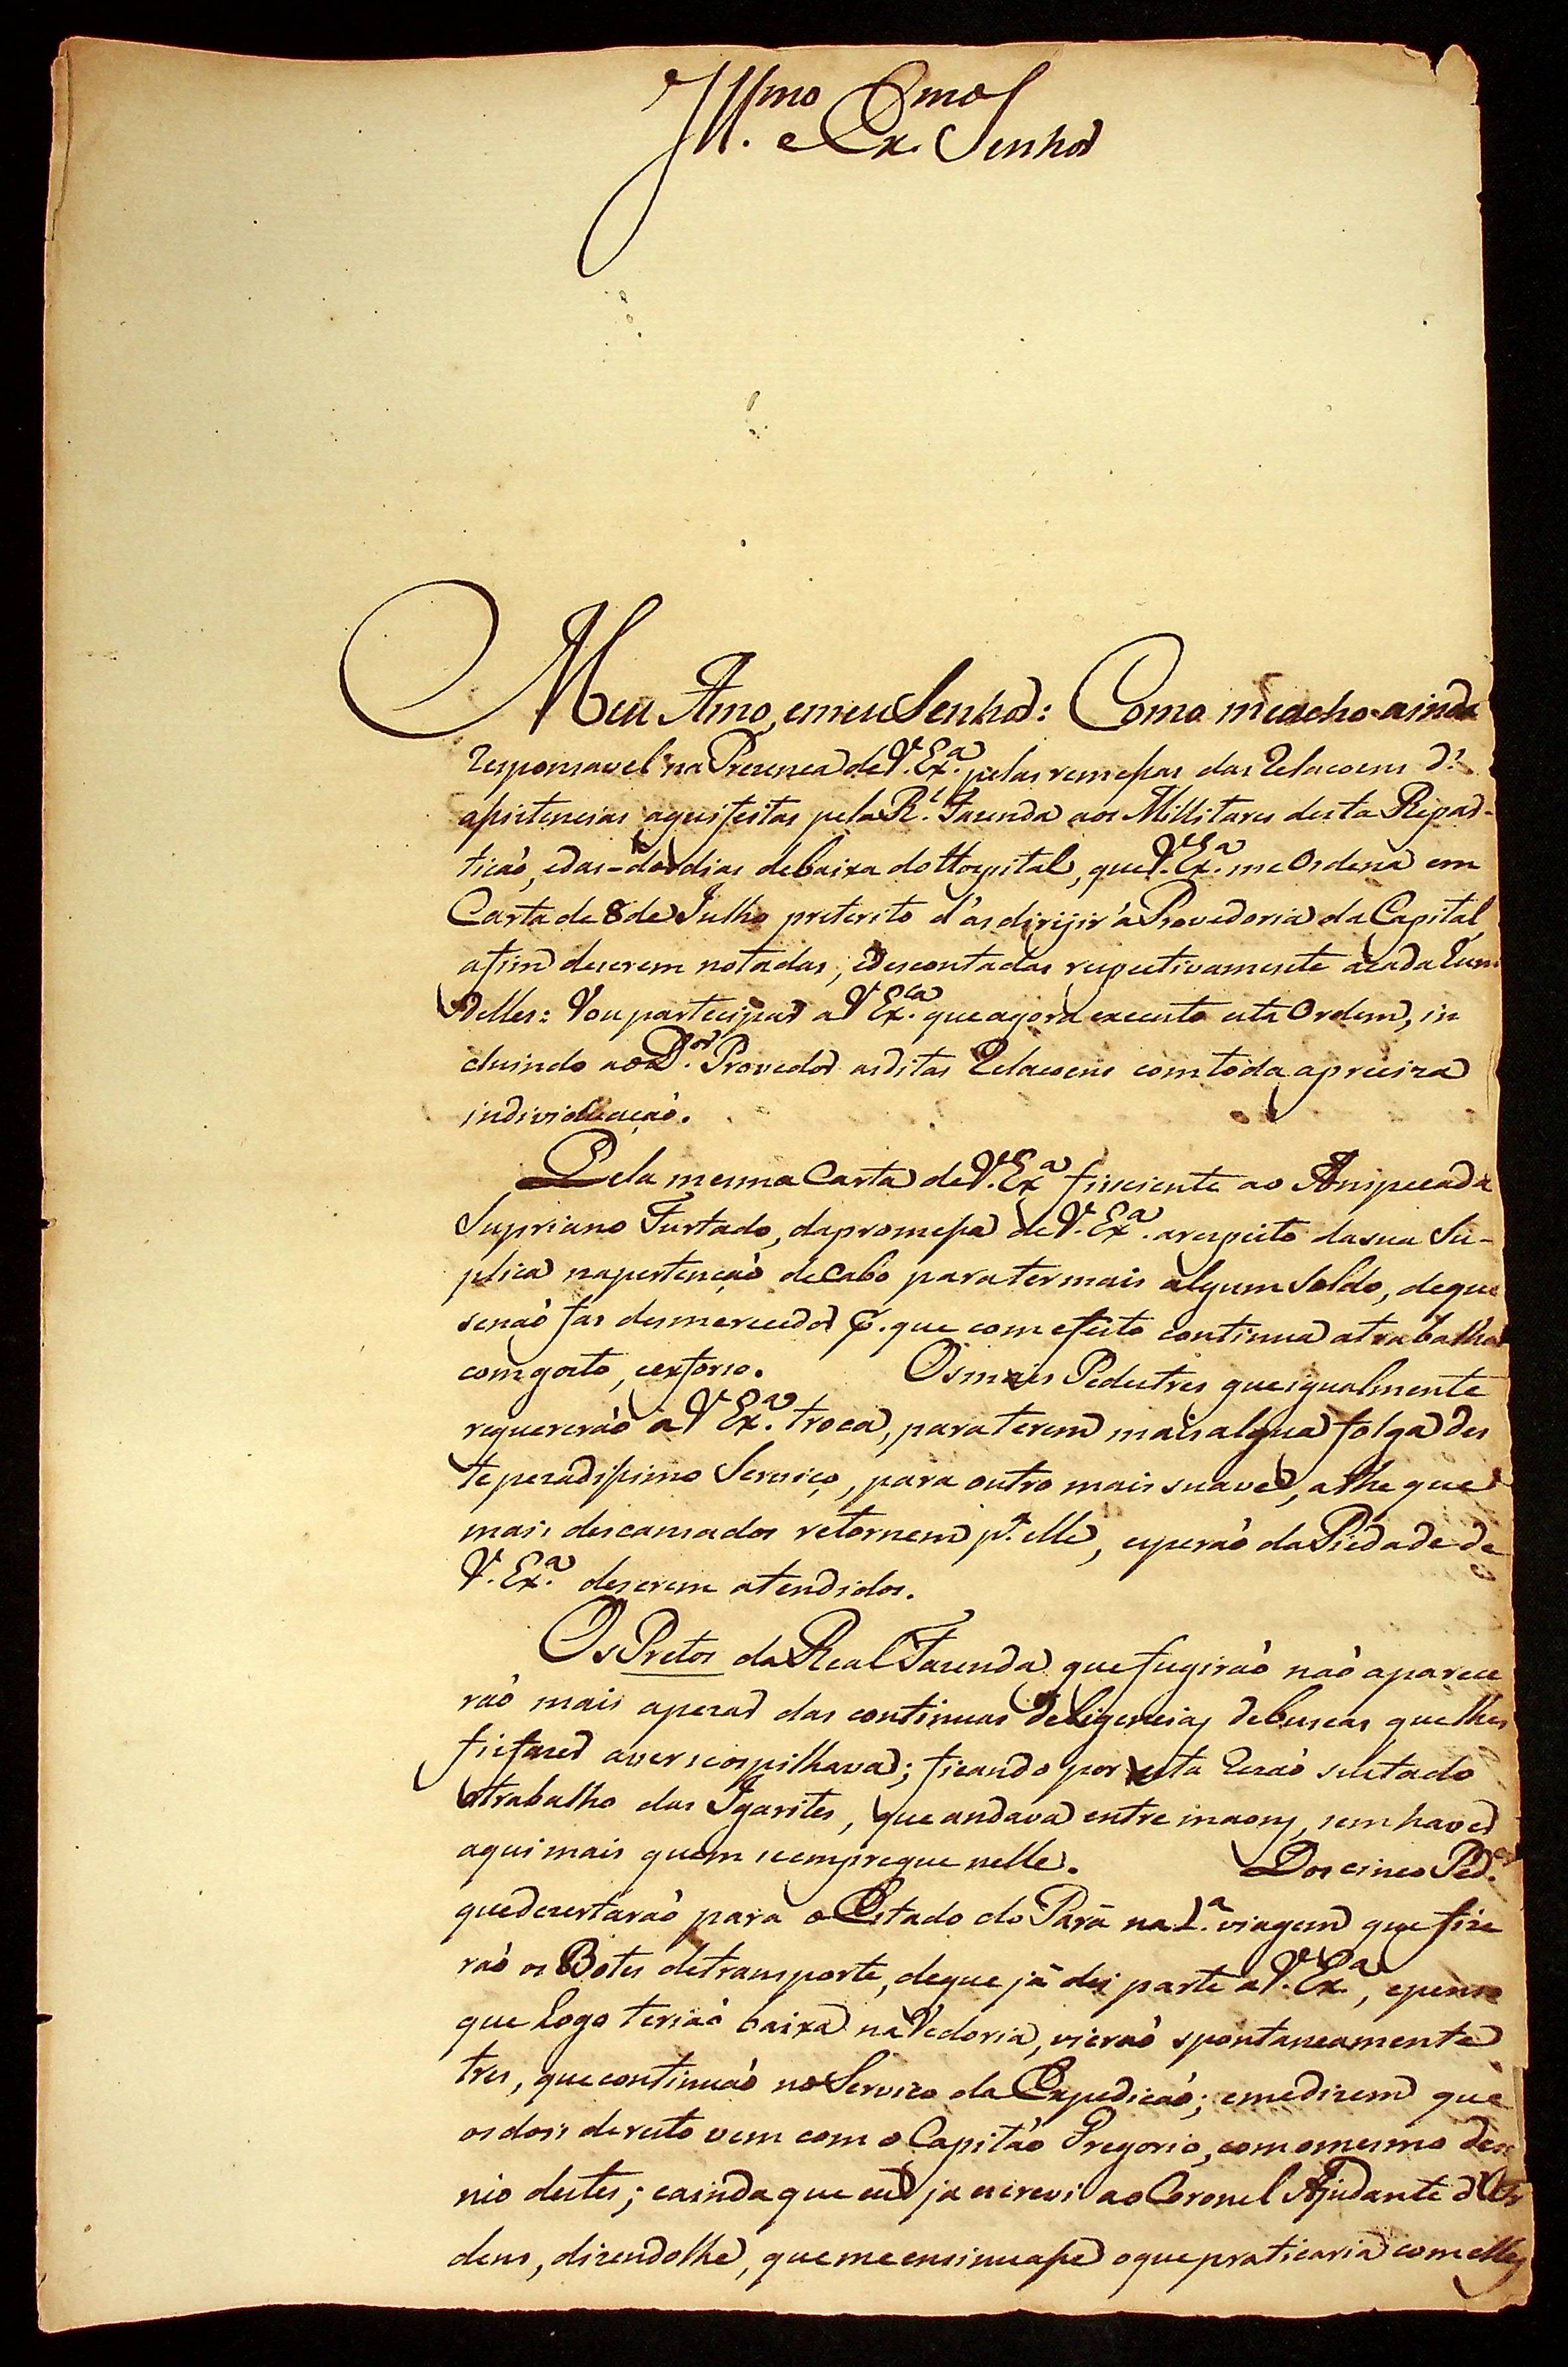 Ill.mo e Ex.mo Senhor
Meu Amo, emeu Senhor: Como meacho ainda
responsavel na Prezença de V. Ex.a pelas remeſsas das Relacoens d'
aſsistencias aqui feitas pela R.l Fazenda aos Millitares desta Repar-
ticaõ, e das dos dias debaixa do Hospital, que V. Ex.a me Ordena em
Carta de 8 de Julho preterito d'as dirijir á Provedoria da Capital,
afim deserem notadas, edescontadas respectivamente acada hum
delles: Vou partecipar a V Ex.ca que agora executo esta Ordem, in
cluindo ao D.or Provedor asditas Relacoens comtoda apreciza
individuaçaõ.
Pela mesma Carta de V. Ex.a fis sciente ao Anspecada
Supriano Furtado, dapromeſsa de V. Ex.a arespeito dasua Su-
plica napertençaõ de Cabo paratermais algum Soldo, deque
senaõ fas desmerecedor p. que com efeito continua atrabalhar
comgosto, eexforso. Osmais Pedestres que igualmente
requereraõ a V Ex.a troca, paraterem mais algua folga des
te pezadiſsimo Serviço, para outro mais suave, athe que
mais descansados retornem p.a elle, esperaõ da Piedade de
V. Ex.a deserem atendidos.
Os Pretos da Real Fazenda que fugiraõ naõ aparece
raõ mais apezar das continuas deligencias debuscas quelhes
fisfazer aver seospilhava; ficando por esta rezaõ sustado
otrabalho das Igarites, que andava entre maons, sem haver
aqui mais quem seempregue nelle. Dos cinco Ped.es
quedezertaraõ para o Estado do Pará na 1.a viagem que fize
raõ os Botes detransporte, deque já dei parte a V. Ex.a, epenso
que logo teriaõ baixa na Vedoria, vieraõ spontaneamente
tres, quecontinuaõ no Servico da Expediçaõ; emedizem que
osdois deresto vem com o Capitáo Gregorio, comomesmo dezi
nio destes; eainda que eu ja escrevi ao Coronel Ajudante d'Or
dens, dizendolhe, quemeensinuaſse oquepraticaria comelles